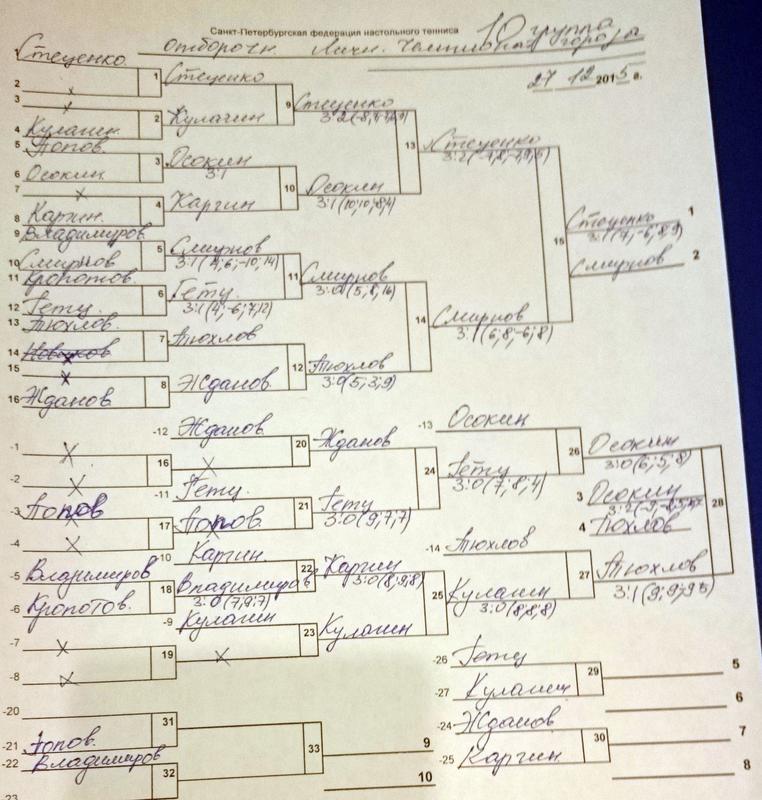 Санкт-Петербургская федерация настольного тенниса
10 группа
отборочн. Личн. Чемпионат города
27 12 2015 г.
1 Стеценко
2 x
3 x
4 Кулагин
5 Попов
6 Осокин
7 x
8 Каргин
9 Владимиров
10 Смирнов
11 Кропотов
12 Гетц
13 Тюхлов
14
15 x
16 Жданов
1 Стеценко
2 Кулагин
3 Осокин
3:1
4 Каргин
5 Смирнов
3:1 (4; 6; -10; 14)
6 Гетц
3:1 (4; -6; 7; 12)
7 Тюхлов
8 Жданов
9 Стеценко
3:2
10 Осокин
3:1 (10; 10; -8; 4)
11 Смирнов
3:0 (5; 8; 16)
12 Тюхлов
3:0 (5; 3; 9)
13 Стеценко
3:2
14 Смирнов
3:1 (6; 8; -6; 8)
15 Стеценко 1
3:1 (7; -6; 8; 9)
Смирнов 2
-1 x
-2 x
16
-3 Попов
-4 x
17
-5 Владимиров
-6 Кропотов
18
-7 x
-8 x
19
-12 Жданов
x
20
-11 Гетц
Попов
21
-10 Каргин
Владимиров
3:0 (7; 9; 7)
22
-9 Кулагин
x
23
Жданов
Гетц
3:0 (9; 7; 7)
24
Каргин
3:0 (8; 9; 8)
Кулагин
25
-13 Осокин
Гетц
3:0 (7; 8; 4)
26
-14 Тюхлов
Кулагин
3:0 (8; 8; 8)
27
Осокин
3:0 (6; 5; 8)
3 Осокин
3:2
4 Тюхлов
28
Тюхлов
3:1 (9; 9; -9; 5)
-26 Гетц
-27 Кулагин
29
5
6
-24 Жданов
-25 Каргин
30
7
8
-20
-21 Попов
31
-22 Владимиров
-23
32
33
9
10